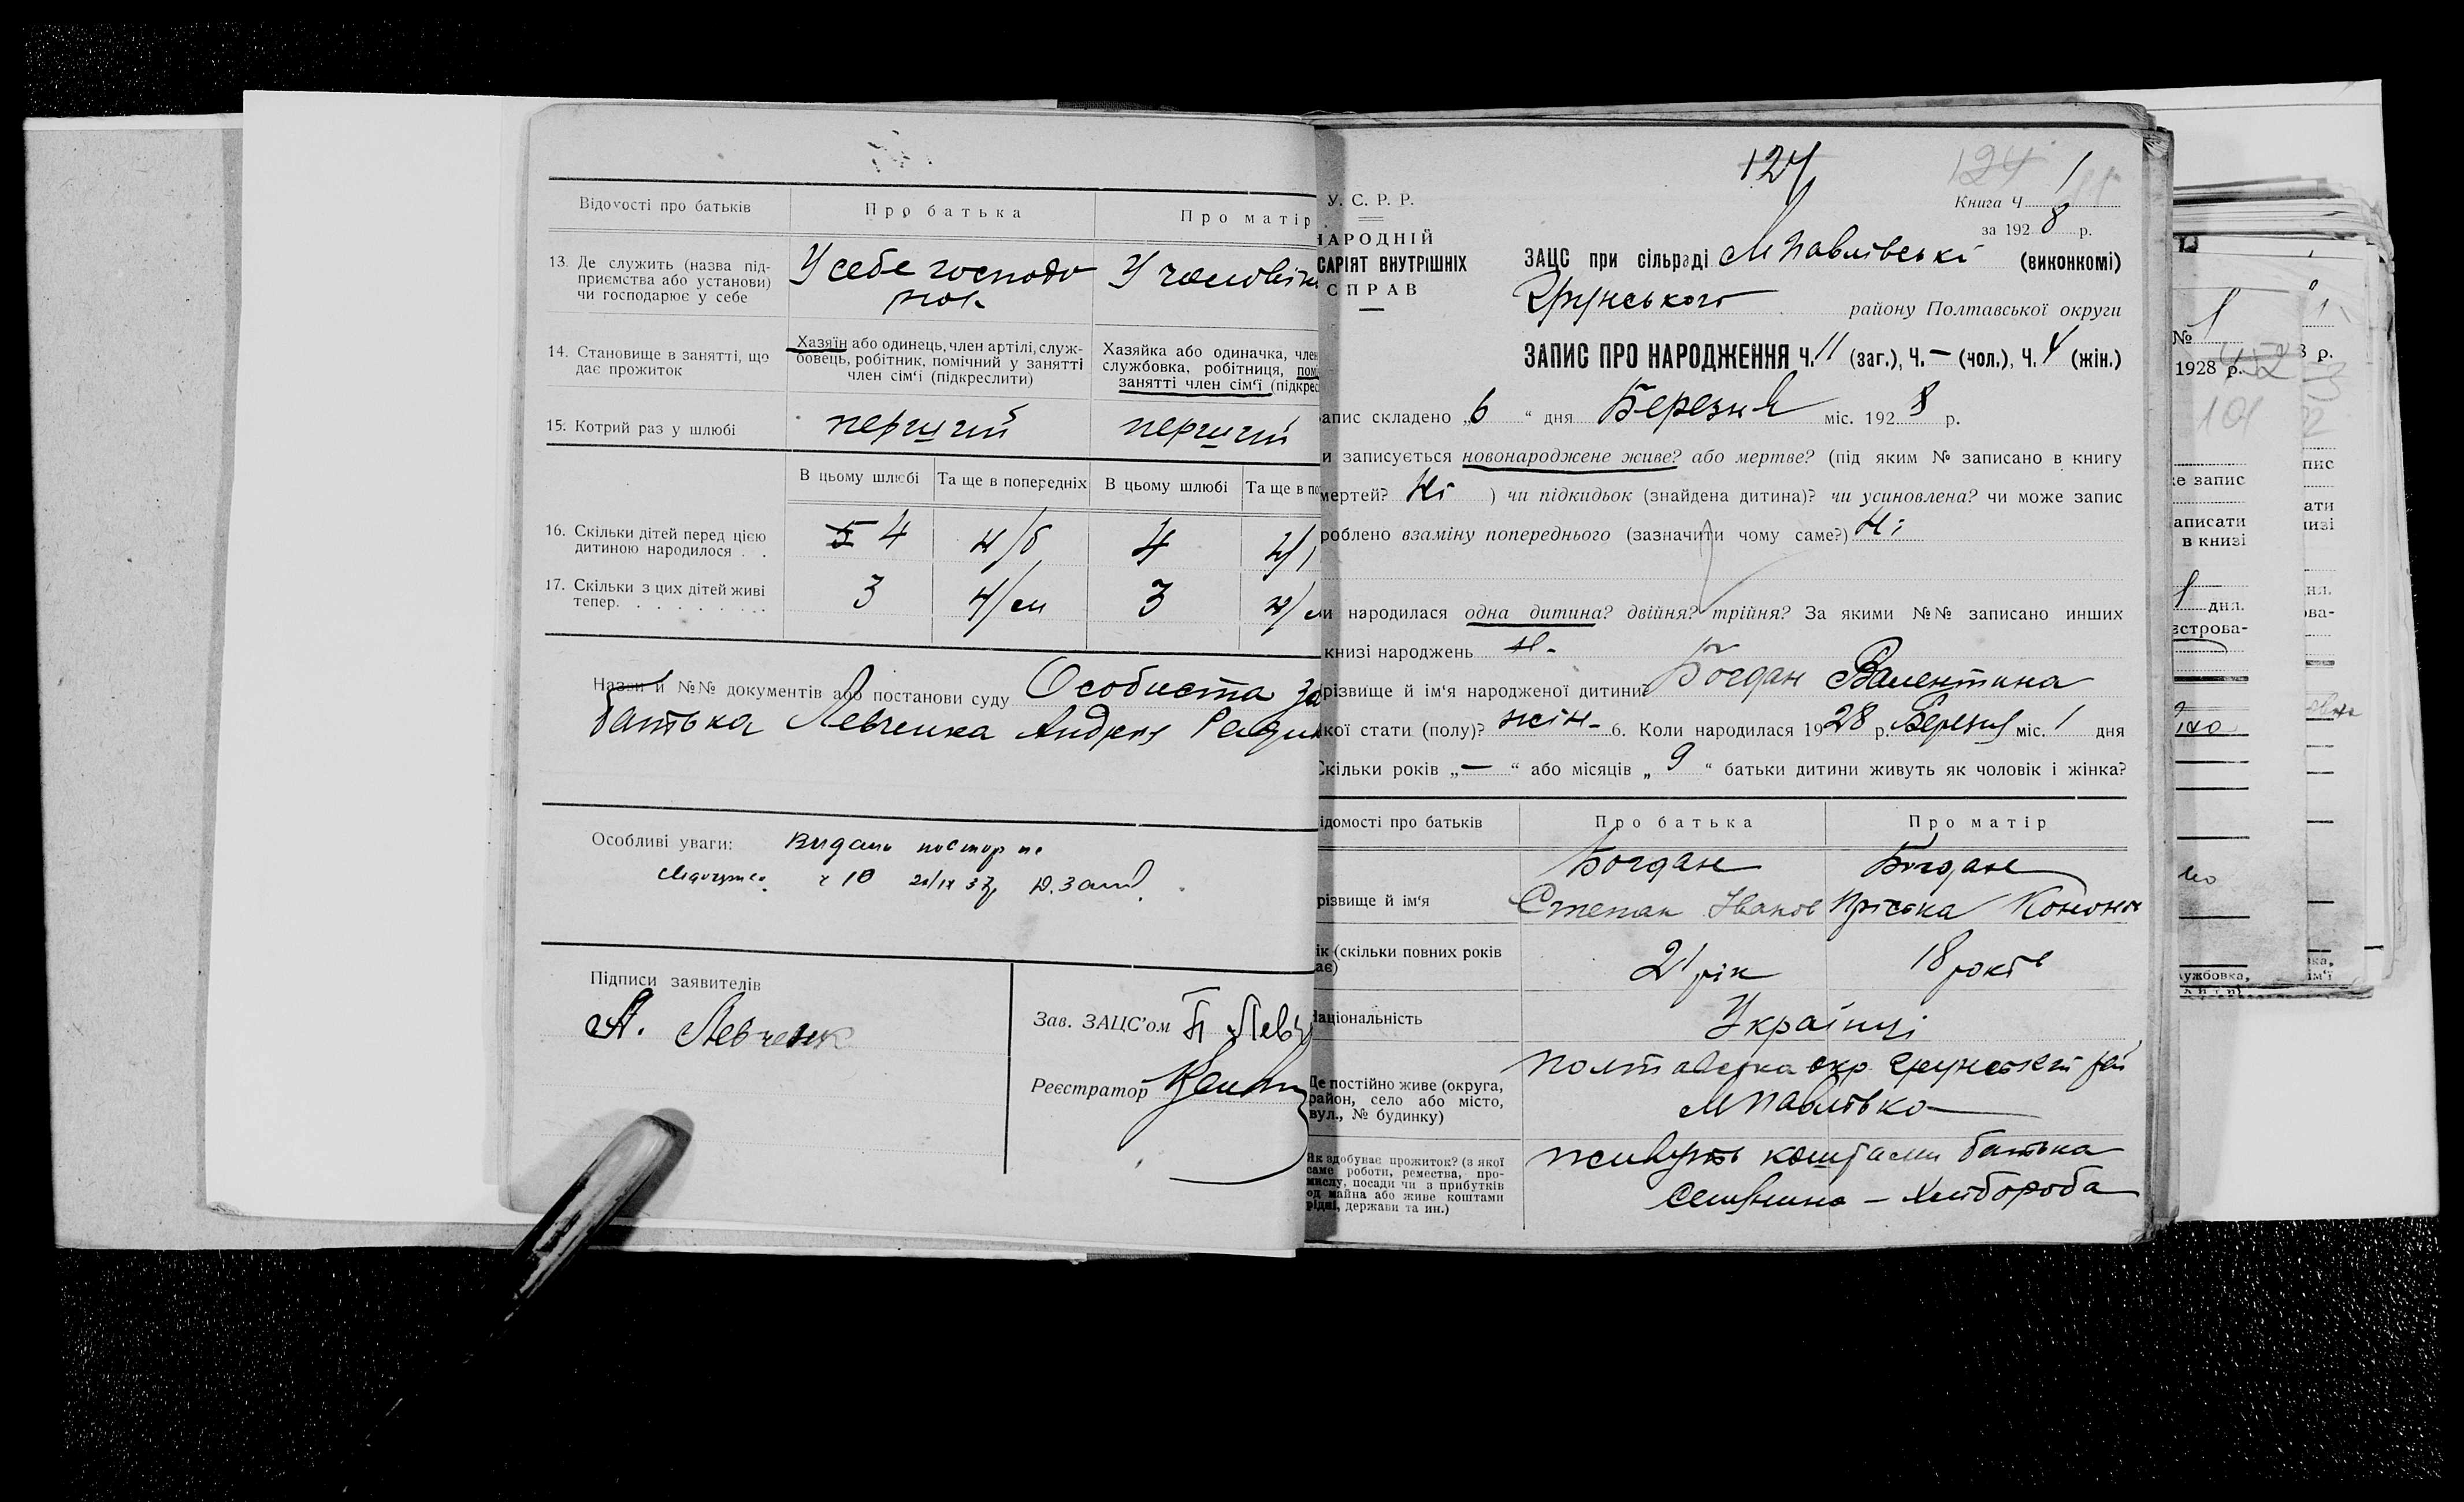 Відомості про батьків
Про батька
Про матір
13. Де служить (назва під-
приємства або установи)
чи господарює у себе
У себе господо
У чоловік
14. Становище в занятті, що
дає прожиток
Хазяїн або одинець, член артілі, служ-
бовець, робітник, помічний у занятті
член сім'ї (підкреслити)
Хазяйка або одиначка, член
службовка, робітниця, помі
занятті член сім'ї (підкрес
15. Котрий раз у шлюбі
перший
перший
В цьому шлюбі
Та ще в попередніх
В цьому шлюбі
Та ще в по
16. Скільки дітей перед цією
дитиною народилося . .
5 4
н/б
4
17. Скільки з цих дітей живі
тепер. . . . . . . . .
3
3
Назви й №№ документів або постанови суду Особиста за
батька Левченка Андрія
Особливі уваги: Видано повторне
ч 10
Підписи заявителів
А. Левченк
Зав. ЗАЦС'ом П Левч
Реєстратор
124
124
1
У. С. Р. Р.
Книга Ч
за 1928 р.
НАРОДНІЙ
САРІЯТ ВНУТРІШНІХ
СПРАВ
ЗАЦС при сільраді М Павлівські (виконкомі)
Грунського району Полтавської округи
ЗАПИС ПРО НАРОДЖЕННЯ Ч. 11 (заг.), Ч. — (чол.), Ч. 4 (жін.)
апис складено „6“ дня Березня міс. 1928 р.
и записується новонароджене живе? або мертве? (під яким № записано в книгу
мертей? Ні ) чи підкидьок (знайдена дитина)? чи усиновлена? чи може запис
роблено взаміну попереднього (зазначити чому саме?) Ні
и народилася одна дитина? двійня? трійня? За якими №№ записано инших
книзі народжень Н.
різвище й ім'я народженої дитини Богдан Валентина
кої стати (полу)? жін. 6. Коли народилася 1928 р. Березня міс. 1 дня
Скільки років „—“ або місяців „9“ батьки дитини живуть як чоловік і жінка?
ідомості про батьків
Про батька
Про матір
різвище й ім'я
Богдан
Степан Іванов
Богдан
Пріська Конон
ік (скільки повних років
ає)
21 рік
18 років
Національність
Українці
Де постійно живе (округа,
район, село або місто,
вул., № будинку)
Полтавська окр. Грунський рай
М Павлівка
Як здобуває прожиток? (з якої
саме роботи, ремества, про-
мислу, посади чи з прибутків
од майна або живе коштами
рідні, держави та ин.)
живуть коштами батька
селянина — хлібороба
№ 1
1928 р.
101